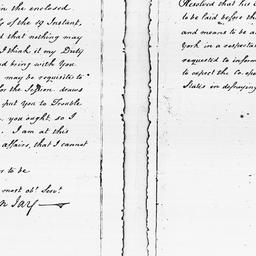 in the enclosed
of the 19 Instant,
d that nothing may
I think it my Duty
nd bring with You
may be requisite to
for the Session draws
put you to Trouble
n you ought, so I
. I am at this
affairs, that I cannot
r to be
most obt. Servt.
n Jay
Resolved that his
to be laid before th
and means to be a
York in a respectab
requested to inform
to expect the Co. ope
States in defraying